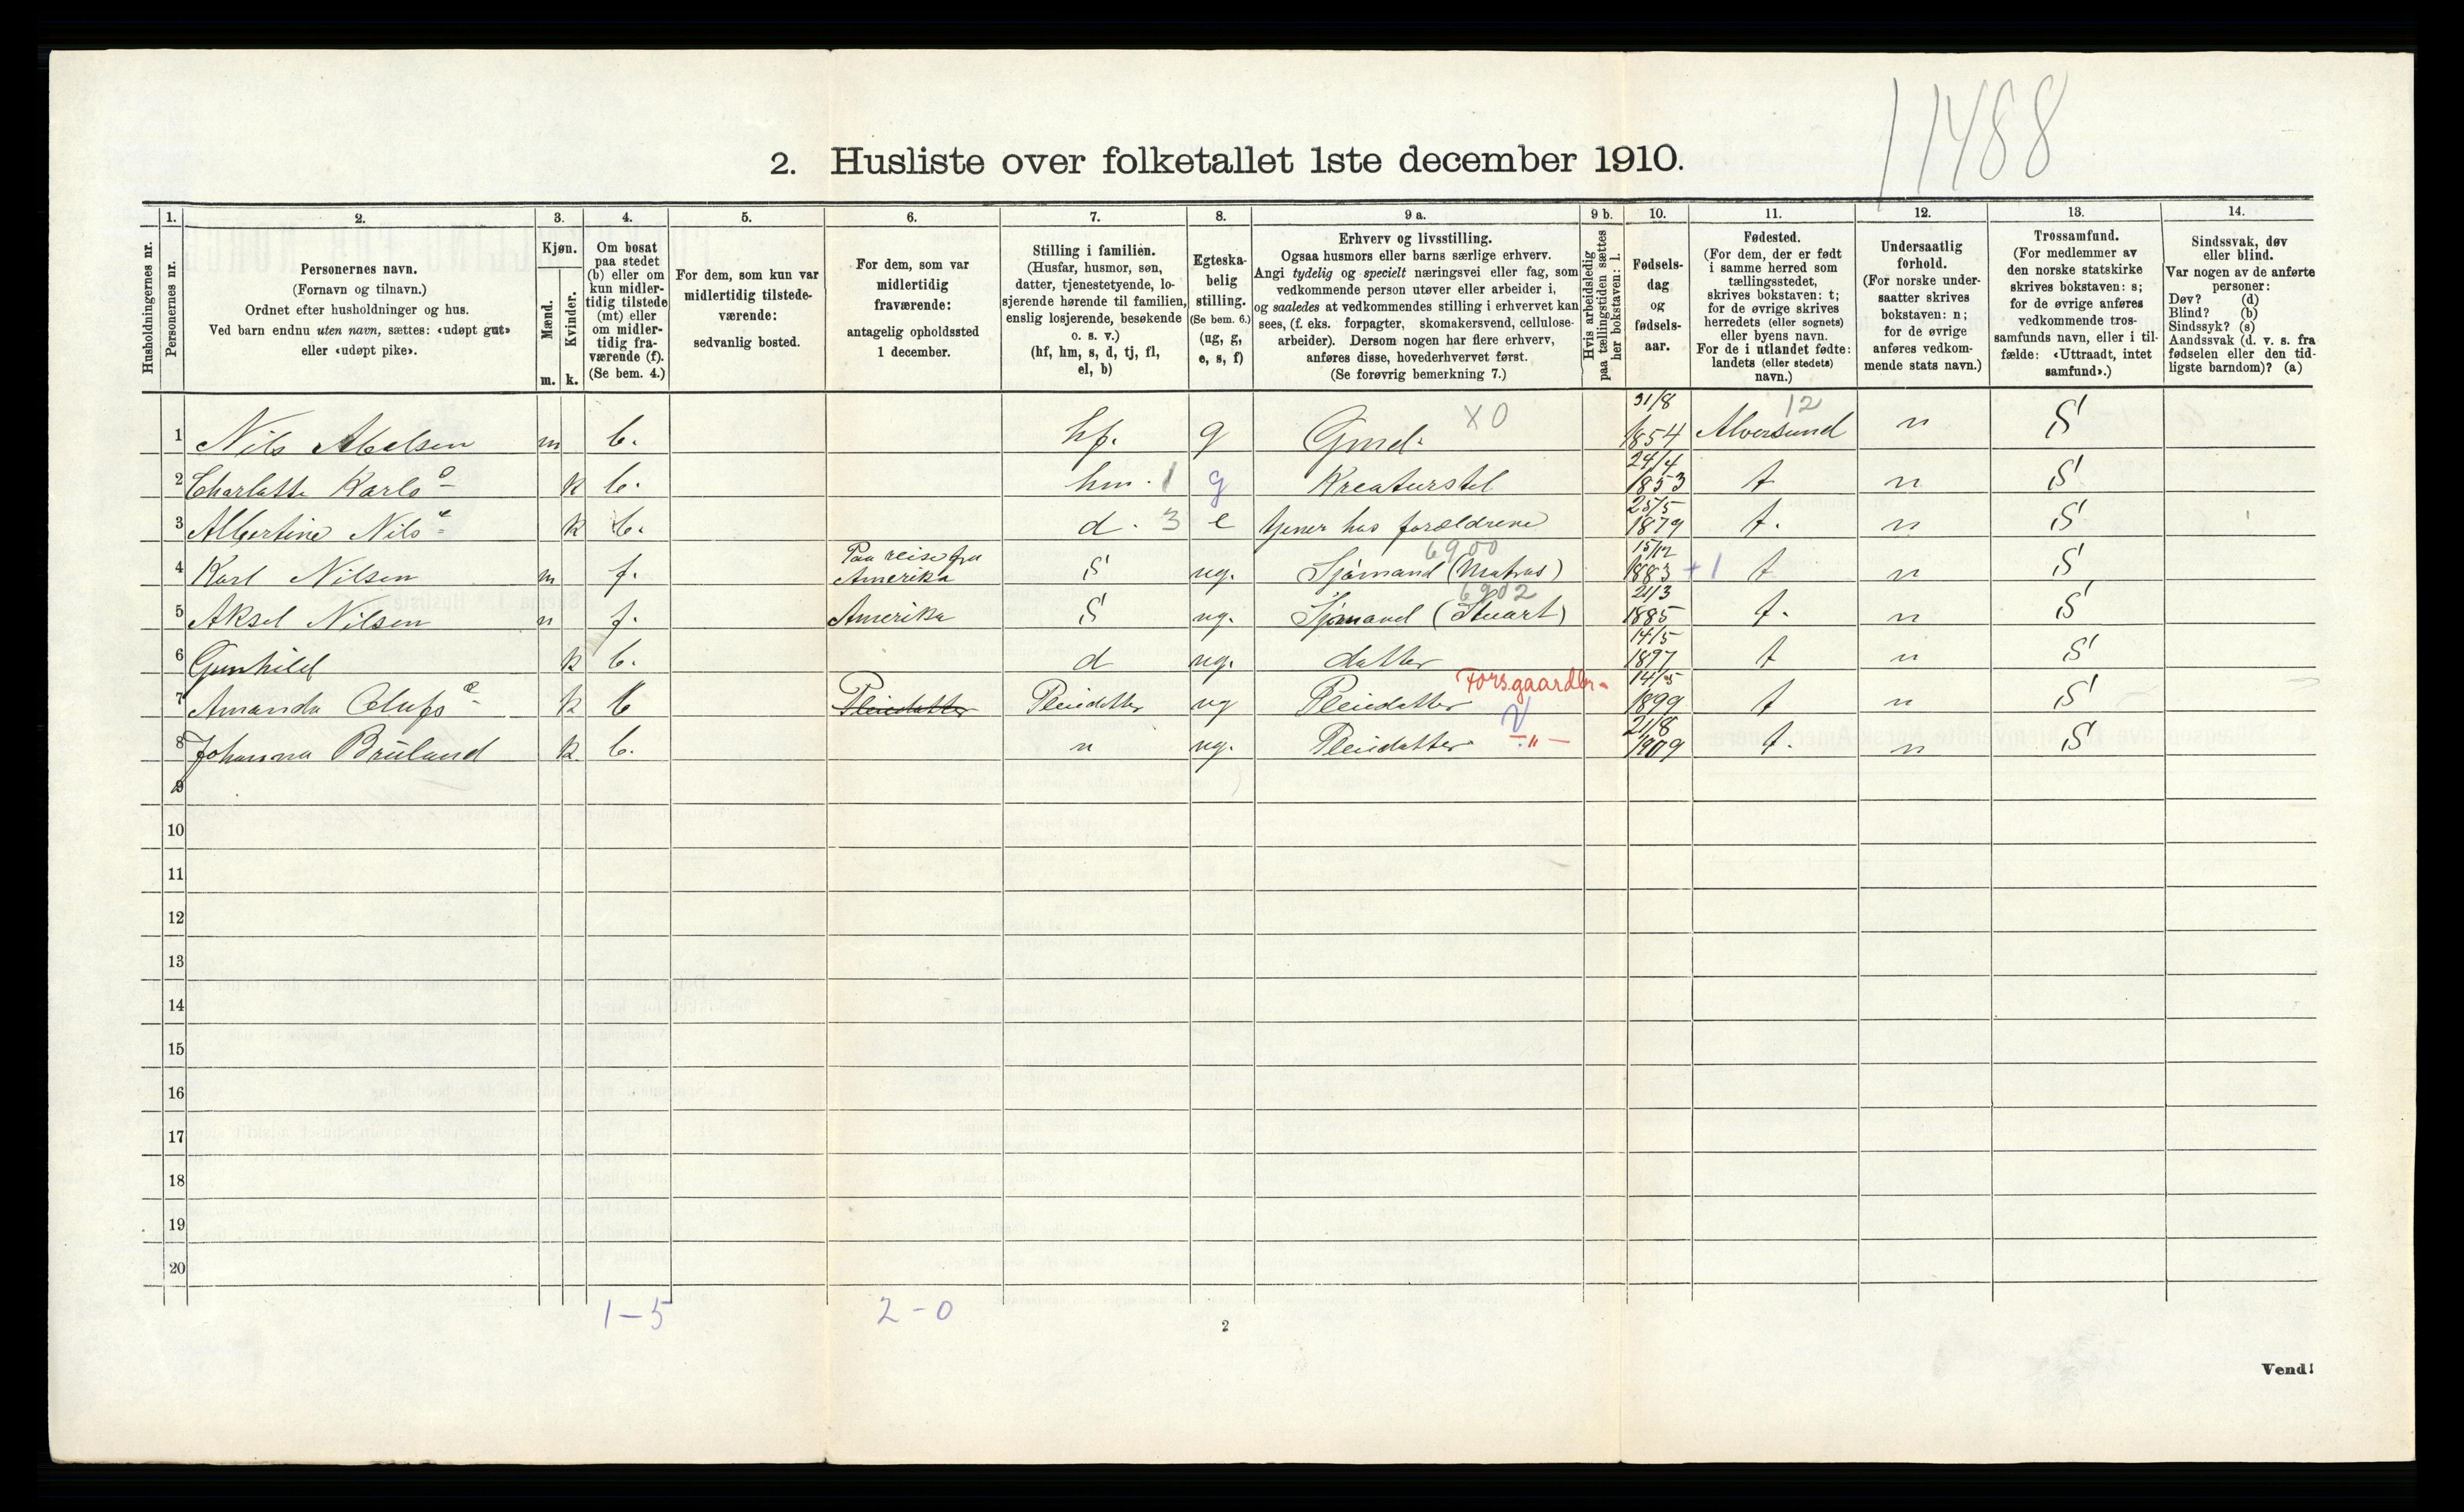 11488
2. Husliste over folketallet 1ste december 1910.
Husholdningernes nr.
1. Personernes nr.
2. Personernes navn. (Fornavn og tilnavn.) Ordnet efter husholdninger og hus. Ved barn endnu uten navn, sættes: «udøpt gut» eller «udøpt pike».
3. Kjøn. Mænd. m. Kvinder. k.
4. Om bosat paa stedet (b) eller om kun midlertidig tilstede (mt) eller om midlertidig fraværende (f). (Se bem. 4.)
5. For dem, som kun var midlertidig tilstedeværende: sedvanlig bosted.
6. For dem, som var midlertidig fraværende: antagelig opholdssted 1 december.
7. Stilling i familien. (Husfar, husmor, søn, datter, tjenestetyende, losjerende hørende til familien, enslig losjerende, besøkende o. s. v.) (hf, hm, s, d, tj, fl, el, b)
8. Egteskabelig stilling. (Se bem. 6.) (ug, g, e, s, f)
9 a. Erhverv og livsstilling. Ogsaa husmors eller barns særlige erhverv. Angi tydelig og specielt næringsvei eller fag, som vedkommende person utøver eller arbeider i, og saaledes at vedkommendes stilling i erhvervet kan sees, (f. eks. forpagter, skomakersvend, cellulosearbeider). Dersom nogen har flere erhverv, anføres disse, hovederhvervet først. (Se forøvrig bemerkning 7.)
9 b. Hvis arbeidsledig paa tællingstiden sættes her bokstaven: l.
10. Fødselsdag og fødselsaar.
11. Fødested. (For dem, der er født i samme herred som tællingsstedet, skrives bokstaven: t; for de øvrige skrives herredets (eller sognets) eller byens navn. For de i utlandet fødte: landets (eller stedets) navn.)
12. Undersaatlig forhold. (For norske undersaatter skrives bokstaven: n; for de øvrige anføres vedkommende stats navn.)
13. Trossamfund. (For medlemmer av den norske statskirke skrives bokstaven: s; for de øvrige anføres vedkommende trossamfunds navn, eller i tilfælde: «Uttraadt, intet samfund».)
14. Sindssvak, døv eller blind. Var nogen av de anførte personer: Døv? (d) Blind? (b) Sindssyk? (s) Aandssvak (d. v. s. fra fødselen eller den tidligste barndom)? (a)
1 Nils Abelsen m b. hf. g Gmd. X0 31/8 1854 12 Alversund n S
2 Charlotte Karlsd k b. hm. 1 g Kreaturstel 24/4 1853 t n S
3 Albertine Nilsd k b. d. 3 e tjener hos forældrene 25/5 1879 t. n S
4 Karl Nilsen m f. Paa reise fra Amerika S ug. Sjømand (Matros) 6900 15/12 1883 +1 t n S
5 Aksel Nilsen m f. Amerika S ug. Sjømand (Stuart) 6902 21/3 1885 t. n S
6 Gunhild k b. d ug. datter 14/5 1897 t n S
7 Amanda Olufsd k b Pleiedatter Pleiedatter ug Pleiedatter Forsgaardbr. 14/5 1899 t n S
8 Johanna Bruland k. b. n ug. Pleiedatter -"- 21/8 1909 t. n S
9
10
11
12
13
14
15
16
17
18
19
20
1-5 2-0
2
Vend!